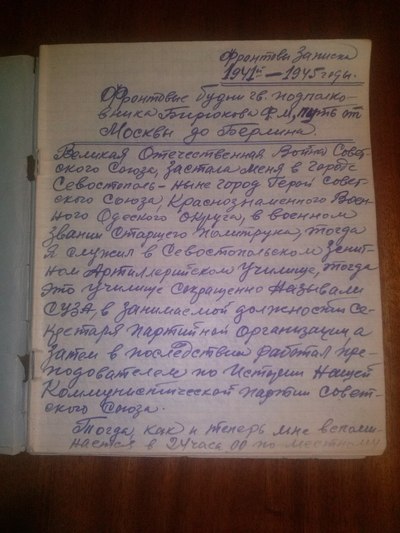 Фронтовы Записки
1941й — 1945 годы.
Фронтовые будни гв. подполко-
вника Бирюкова Ф.М, путь от
Москвы до Берлина.
Великая Отечественная Война Совет-
ского Союза, застала меня в городе
Севостополь - ныне город Герой Совет-
ского Союза, Краснознаменного Воен-
ного Одеского округа, в военном
звании Старшего политрука, тогда
я служил в Севостопольском Зенит-
ном Артиллерийском училище, тогда
это училище сокращенно называли
СУЗА, в занимаемой должности се-
кретаря партийной организации, а
затем в последствии работал пре-
подователем по Истории Нашей
Коммунистической партии Совет-
ского Союза.
Тогда, как и теперь мне вспоми-
нается в 24 часа 00 по местному